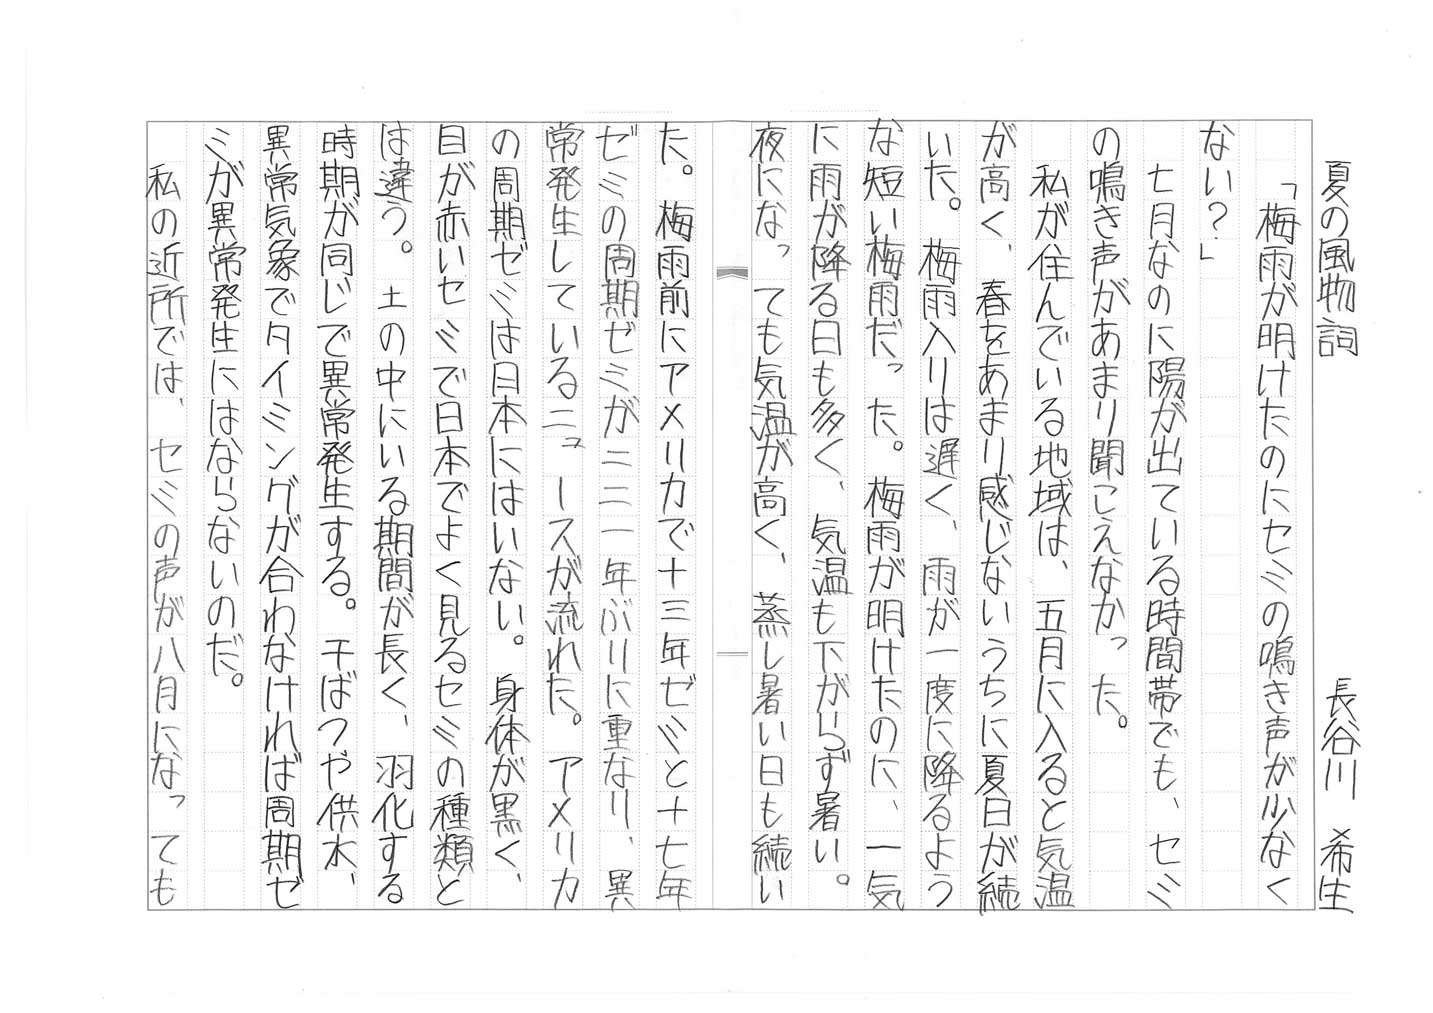 夏の風物詞
長谷川 希生
「梅雨が明けたのにセミの鳴き声が少なく
ない？」
七月なのに陽が出ている時間帯でも、セミ
の鳴き声があまり聞こえなかった。
私が住んでいる地域は、五月に入ると気温
が高く、春をあまり感じないうちに夏日が続
いた。梅雨入りは遅く、雨が一度に降るよう
な短い梅雨だった。梅雨が明けたのに、一気
に雨が降る日も多く、気温も下がらず暑い。
夜になっても気温が高く、蒸し暑い日も続い
た。梅雨前にアメリカで十三年ゼミと十七年
ゼミの周期ゼミが二二一年ぶりに重なり、異
常発生しているニュースが流れた。アメリカ
の周期ゼミは日本にはいない。身体が黒く、
目が赤いセミで日本でよく見るセミの種類と
は違う。土の中にいる期間が長く、羽化する
時期が同じで異常発生する。干ばつや供水、
異常気象でタイミングが合わなければ周期ゼ
ミが異常発生にはならないのだ。
私の近所では、セミの声が八月になっても